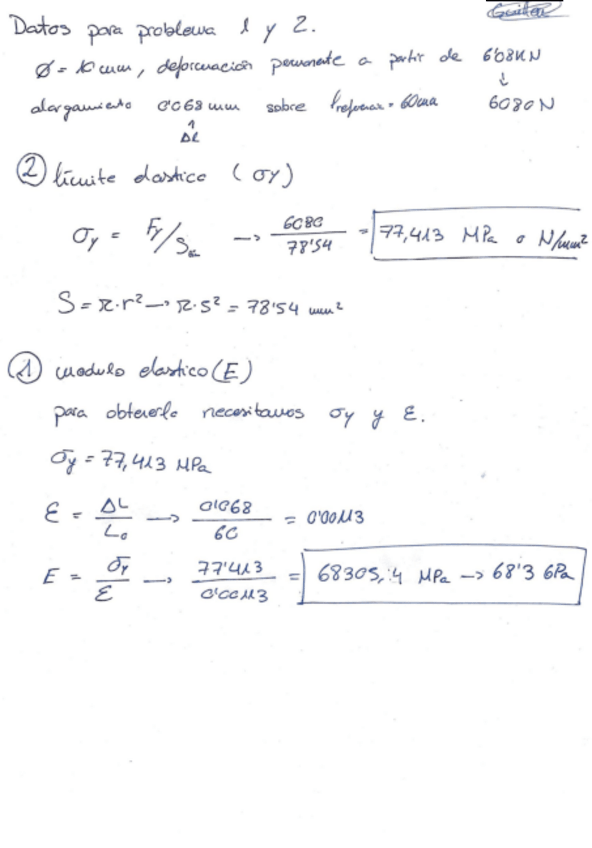 Datos para problema 1 y 2.
Ø = 10 mm, deformación permanente a partir de 6'08KN
↓
alargamiento 0'068 mm sobre l referenc = 60mm 6080 N
↑
ΔL
② límite elastico (σy)
σy = Fy/S₀ → 6080/78'54 = 77,413 MPa o N/mm²
S = π·r² → π·5² = 78'54 mm²
① modulo elastico (E)
para obtenerlo necesitamos σy y ε.
σy = 77,413 MPa
ε = ΔL/L₀ → 0'068/60 = 0'00113
E = σy/ε → 77'413/0'00113 = 68305,4 MPa → 68'3 GPa